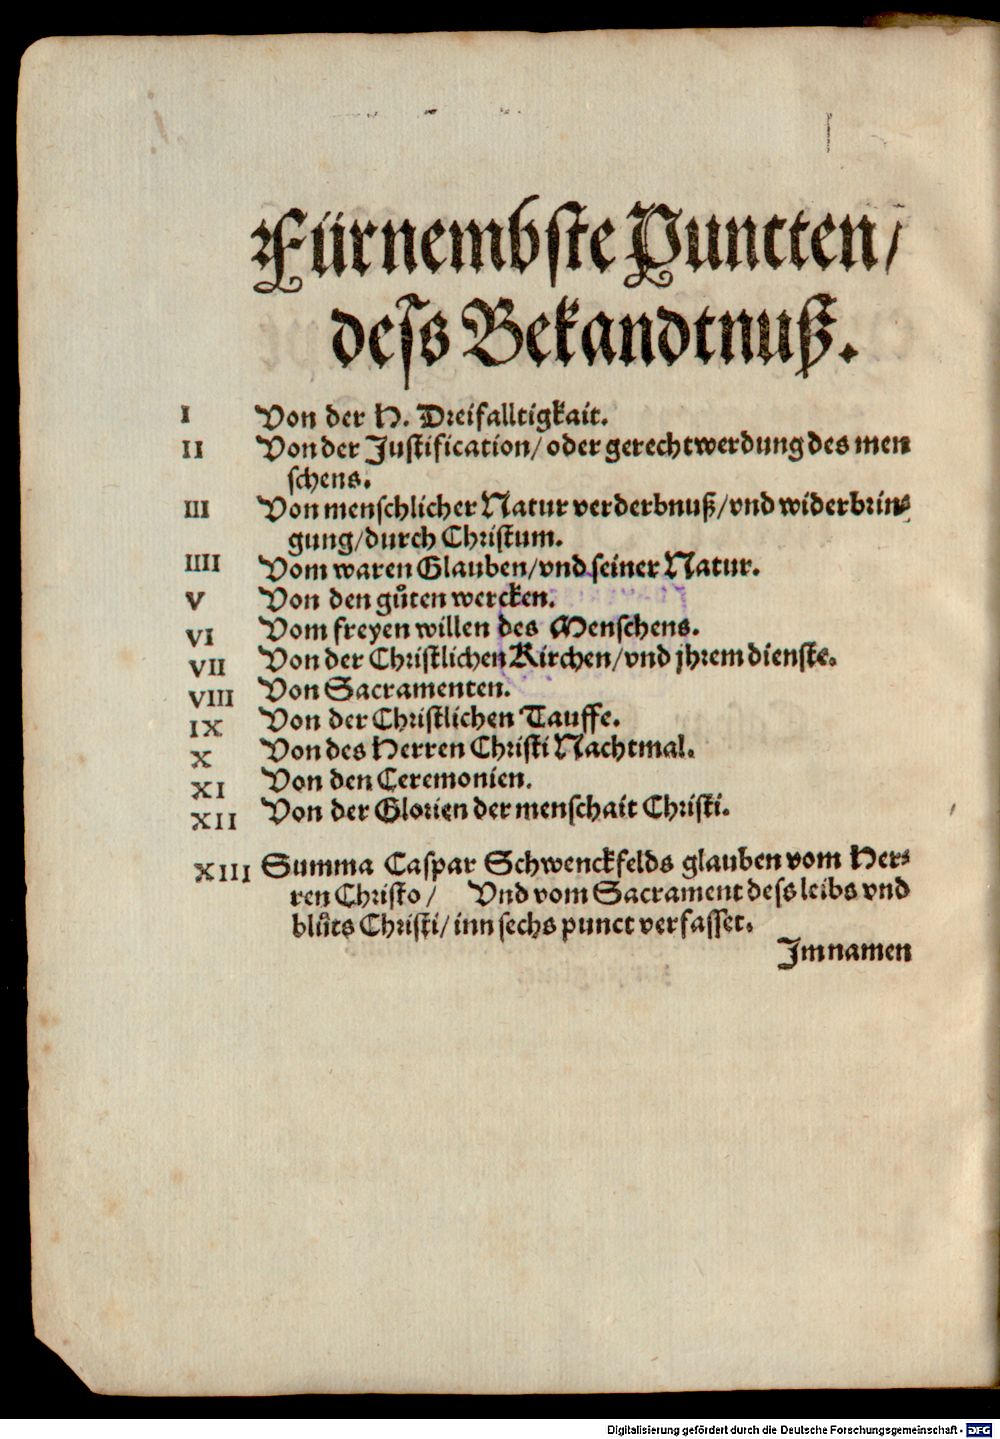 Fürnembste Puncten/
deſs Bekandtnuß.
I Von der H. Dreifalltigkait.
II Von der Juſtification/ oder gerechtwerdung des men
ſchens.
III Von menſchlicher Natur verderbnuß/ vnd widerbrin⸗
gung/ durch Chriſtum.
IIII Vom waren Glauben/ vnd ſeiner Natur.
V Von den gůten wercken.
VI Vom freyen willen des Menſchens.
VII Von der Chriſtlichen Kirchen/ vnd jhrem dienſte.
VIII Von Sacramenten.
IX Von der Chriſtlichen Tauffe.
X Von des Herren Chriſti Nachtmal.
XI Von den Ceremonien.
XII Von der Glorien der menſchait Chriſti.
XIII Summa Caſpar Schwenckfelds glauben vom Her⸗
ren Chriſto/ Vnd vom Sacrament deſs leibs vnd
blůts Chriſti/ inn ſechs punct verfaſſet.
Jm namen
Digitalisierung gefördert durch die Deutsche Forschungsgemeinschaft - DFG